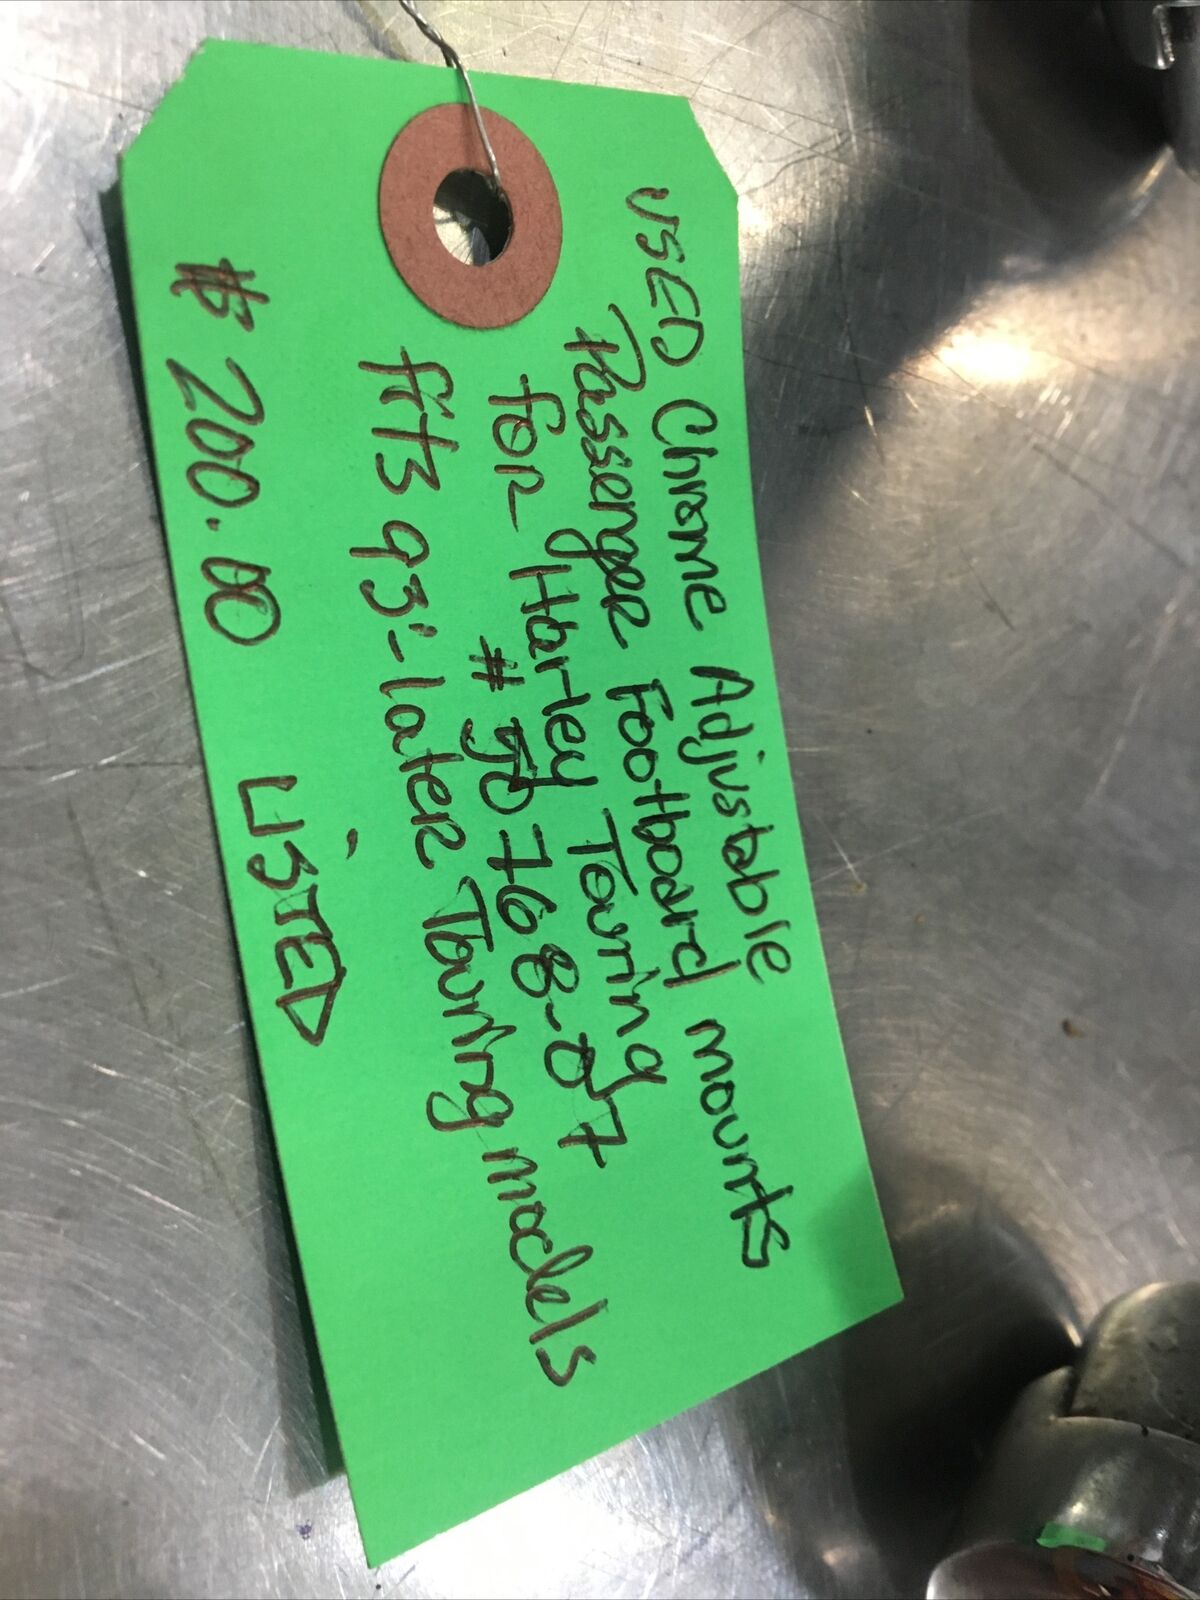 USED Chrome Adjustable
Passenger Footboard mounts
for Harley Touring
# 50768-07
fits 93'-later Touring models
$200.00 LISTED